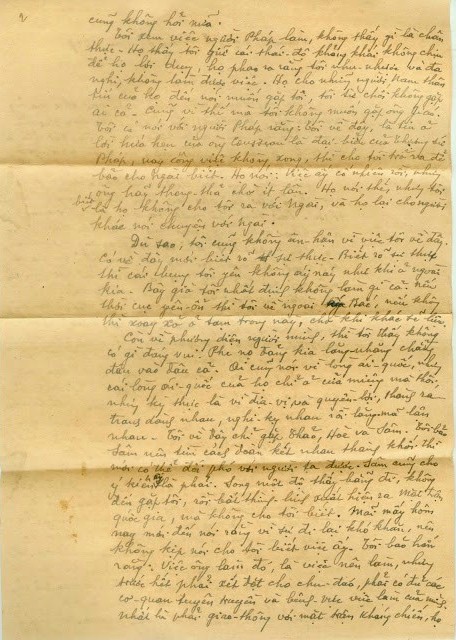 2
cũng không hỏi nữa.
Tôi xem việc người Pháp làm, không thấy gì là chân
thực - Họ thấy tôi giữ cái thái-độ khẳng khái không chịu
để họ lợi dụng, họ phao ra rằng tôi nhu-nhược và đa
nghi, không làm được việc - Họ cho những người Nam thân
tín của họ đến nói muốn gặp tôi, tôi từ chối không gặp
ai cả - Cũng vì thế mà tôi không muốn gặp ông
Tôi có nói với người Pháp rằng: Tôi về đây, là tin ở
lời hứa hẹn của ông Cousseau là đại biểu của
Pháp, nay công việc không xong, thì cho tôi trở ra để
báo cho Ngài biết. Họ nói: Việc ấy có nhiên rồi, nhưng
ông hãy thong thả chờ ít lâu. Họ nói thế, nhưng tôi
biết là họ không cho tôi ra với Ngài, vì họ lại cho người
khác nói chuyện với Ngài.
Dù sao, tôi cũng không ân-hận về việc tôi về đây.
Có về đây mới biết rõ sự thực - Biết rõ sự thực
thì cái bụng tôi yên không áy náy như khi ở ngoài
kia - Bây giờ tôi nhất định không làm gì cả. nếu
thời cục yên-ổn thì tôi về ngoài Bắc, nếu không
thì xoay xở ở tạm trong này, chờ khi khác sẽ liệu.
Còn về phương diện người mình, thì tôi thấy không
có gì đáng vui. Phe nọ đảng kia lăng-nhăng chẳng
đâu vào đâu cả. Ai cũng nói vì lòng ái-quốc, nhưng
cái lòng ái-quốc của họ chỉ ở cửa miệng mà thôi,
nhưng kỳ thực là vì địa-vị và quyền-lợi, thành ra
tranh dành nhau, nghi-kỵ nhau rồi lừng-mà lẫn
nhau - Tôi về đây chỉ gặp Thảo, Hoè và Sâm. Tôi bảo
Sâm nên tìm cách đoàn kết nhau thành khối thì
mới có thể đối phó với người ta được. Sâm cũng cho
ý kiến ấy là phải. Song mấy độ thấy bẵng đi, không
đến gặp tôi, rồi bất thình-lình phát hiện ra mặt trận
quốc gia, mà không cho tôi biết. Mãi mấy hôm
nay mới đến nói rằng vì sự đi lại khó khăn, nên
không kịp nói cho tôi biết việc ấy. Tôi bảo hắn
rằng: Việc ông làm đó, là việc nên làm, nhưng
trước hết phải xếp đặt cho chu-đáo, phải có đủ các
cơ-quan tuyên truyền và bênh-vực việc làm của mình,
nhất là phải giao-thông với mặt trận kháng chiến, họ